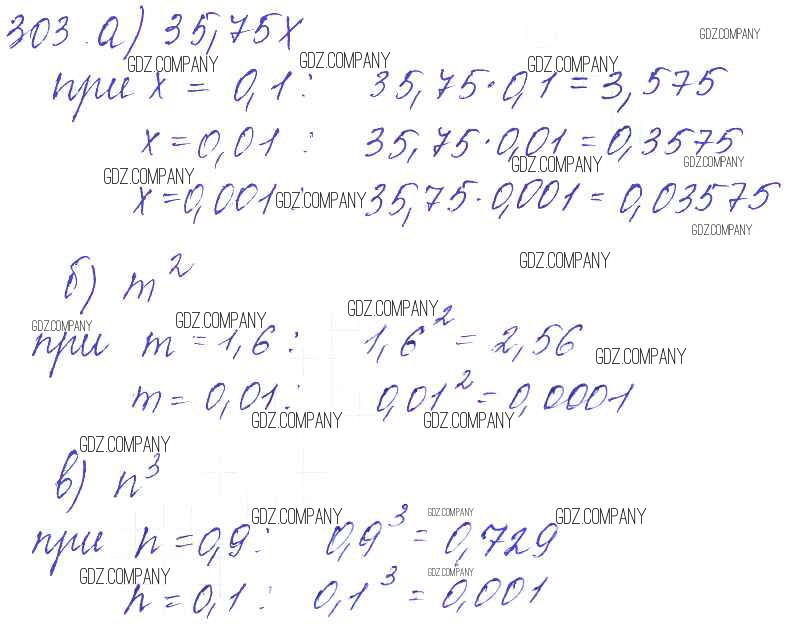 303. а) 35,75x
GDZ.COMPANY GDZ.COMPANY GDZ.COMPANY GDZ.COMPANY
при x = 0,1 : 35,75·0,1 = 3,575
x = 0,01 : 35,75·0,01 = 0,3575
GDZ.COMPANY GDZ.COMPANY GDZ.COMPANY
x = 0,001 : 35,75·0,001 = 0,03575
GDZ.COMPANY GDZ.COMPANY
б) m²
GDZ.COMPANY
GDZ.COMPANY GDZ.COMPANY GDZ.COMPANY
при m = 1,6 : 1,6² = 2,56
GDZ.COMPANY
m = 0,01 : 0,01² = 0,0001
GDZ.COMPANY GDZ.COMPANY
GDZ.COMPANY
в) n³
GDZ.COMPANY GDZ.COMPANY GDZ.COMPANY
при n = 0,9 : 0,9³ = 0,729
GDZ.COMPANY GDZ.COMPANY
n = 0,1 : 0,1³ = 0,001